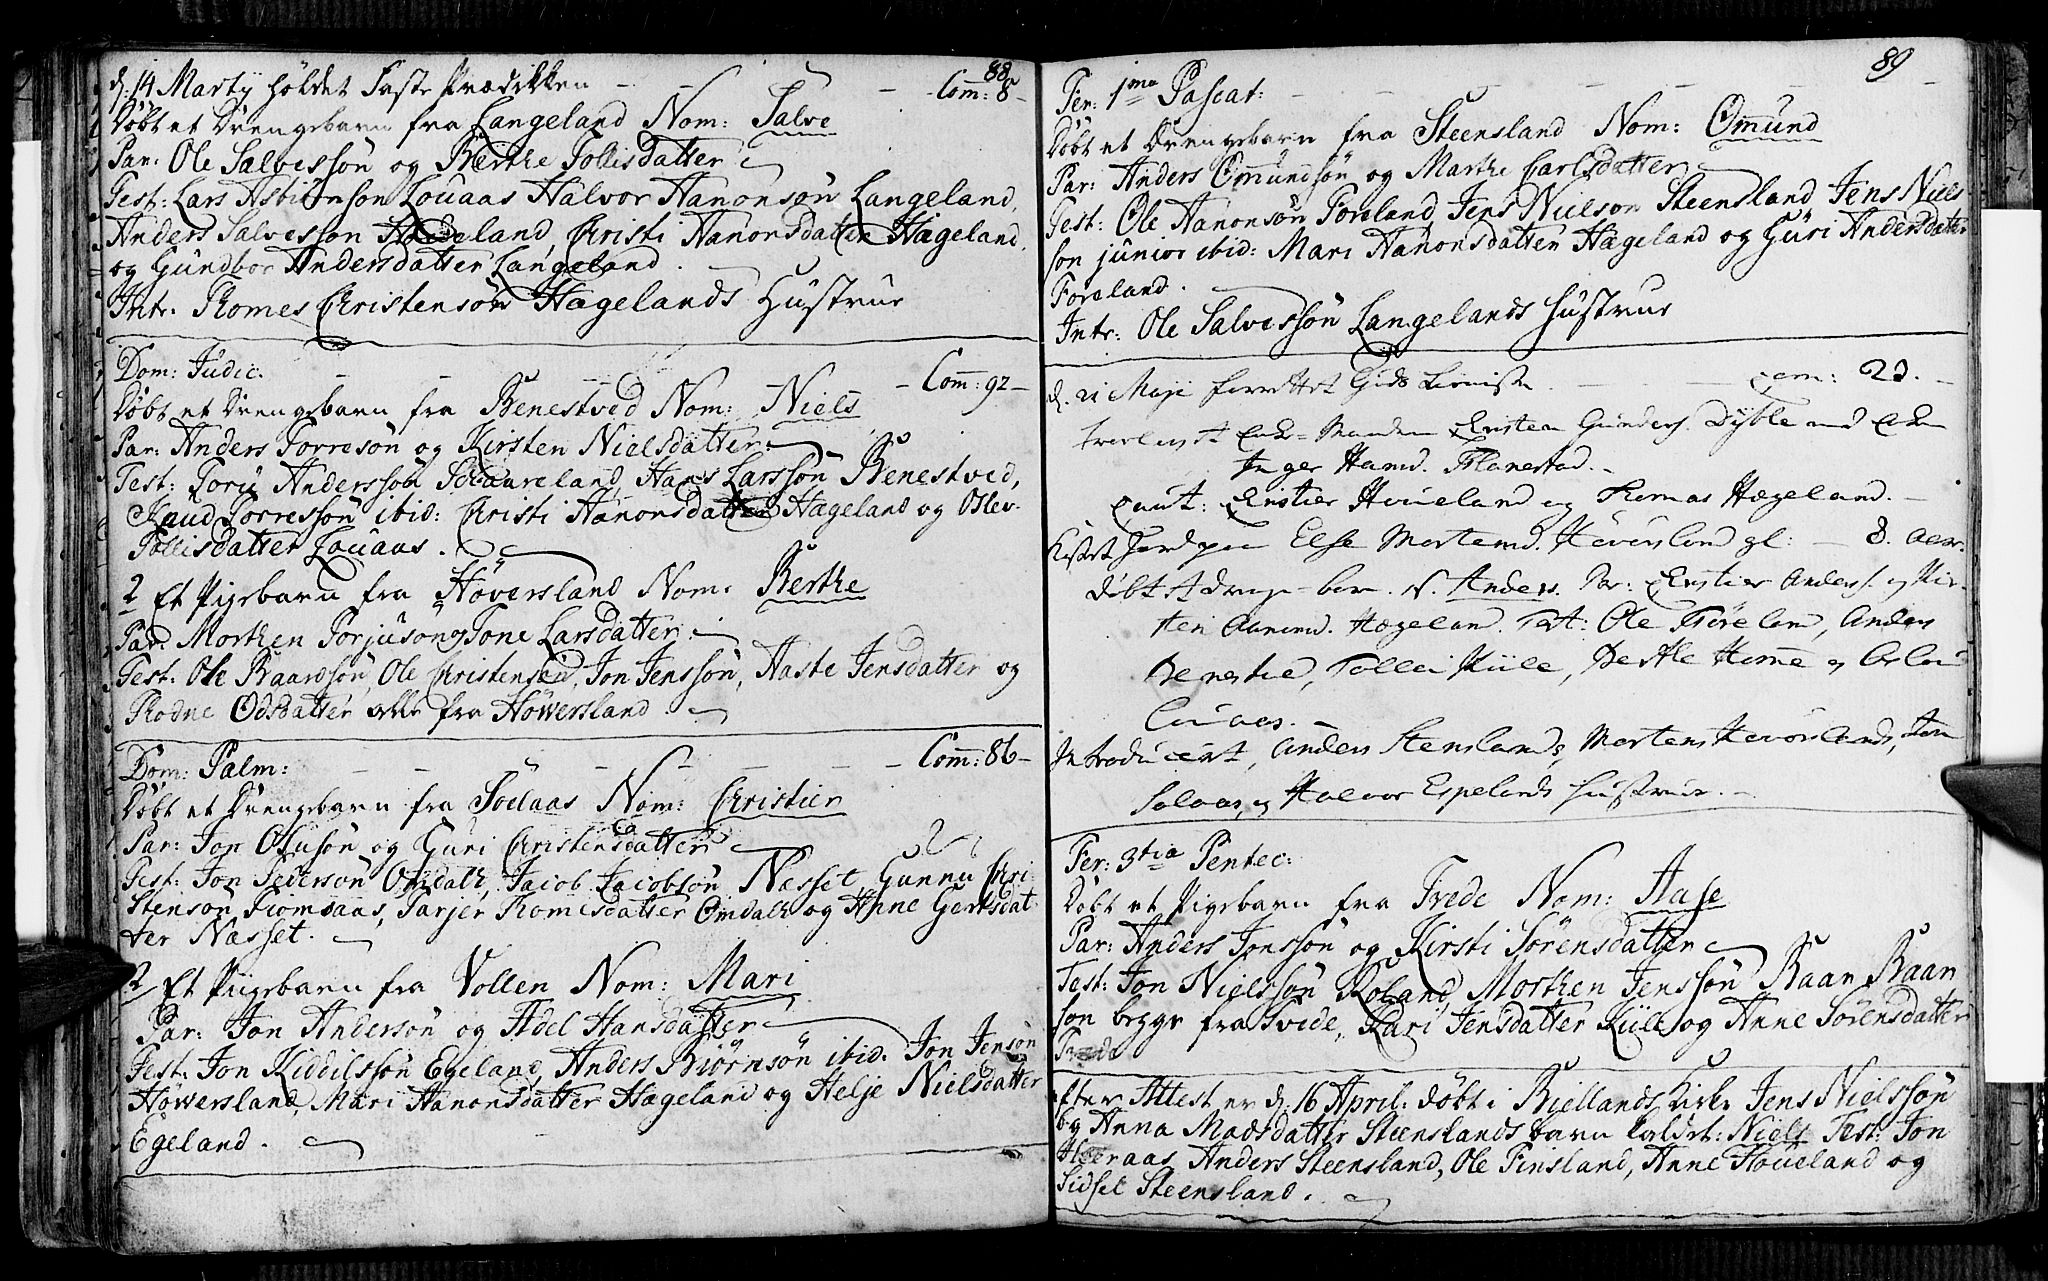 88
d. 14 Martÿ holdet Faste Prædikken - - - Com̄: 8 -
Döbt et Drengebarn fra Langeland Nom: Salve
Par: Ole Salvessön og Berthe Tollisdatter
Test: Lars Asbiönson Louaas Halvor Hanonsön Langeland,
Anders Salvesson Hægeland, Christi Hanonsdatter Hægeland,
og Gundbor Andersdatter Langeland.
Intr. Thomes Christensön Hægelands Hustrue
Dom: Judic. - - - Com̄: 92 -
Döbt et Drengebarn fra Benestved Nom: Niels
Par: Anders Torresön og Kirsten Nielsdatter
Test: Tory Andersson Schaureland, Hans Larssön Benestved,
Knud Torressön ibid: Christi Hanonsdatter Hægeland og Oslev
Tollisdatter Louaas.
2 Et Pigebarn fra Höversland Nom: Berthe
Par: Morthen Torjuson og Tone Larsdatter
Test: Ole Baardsön, Ole Christensen, Jon Jenssön, Haste Jensdatter og
Thodne Odsdatter alle fra Höwersland.
Dom: Palm: - - - Com̄: 86 -
Döbt et Drengebarn fra Soelaas Nom: Christien
Par: Jon Olusön og Guri Christensdatter
Test: Jon Pedersön Omdall, Jacob Jacobsön Næsset, Gunnu Chri-
stensön Fromsaas, Tarjer Thomisdatter Omdall og Anne Gertsdat-
ter Næsset.
2 Et Pigebarn fra Vollen Nom: Mari
Par: Jon Andersön og Adel Hansdatter
Test: Jon Kiddilssön Egeland, Anders Biörnsön ibid. Jon Jensön
Höwersland, Mari Hanonsdatter Hægeland og Helje Nielsdatter
Egeland.
89
Fer: 1ma Pascat:
Döbt et Drengebarn fra Steensland Nom: Om̄und
Par: Anders Om̄undsön og Marthe Carlsdatter
Test: Ole Hanonsön Foreland, Jens Nielson Steensland, Jens Niels
son junior ibid: Mari Hanonsdatter Hægeland og Guri Andersdatter
Foreland.
Intr: Ole Salvessön Langelands Hustrue
d. 21 Maji forrettet Guds tieniste. - - com: 23. -
trolovet Enke-Manden Christen Gunders. Dyble med Enken
Inger Hansd. Flanestad. -
Caut: Christen Houeland og Thomas Hægeland. -
Kastet Jord paa Else Mortensd. Höversland gl: - 8. aar.
döbt et drenge-barn. N. Anders. Par: Christen Anders. og Kir-
sten Aanend. Hægeland. Test: Ole Föreland, Anders
Benestve, Tollei Kiile, Berthe Home og Oslau
Louaas. -
Introduceret, Anders Stenslands, Mortens Höverslands, Jon
Solaas, og Halvor Espelands hustruer. -
Fer: 3tia Pentec:
Döbt et Pigebarn fra Trede Nom: Aase
Par: Anders Jonssön og Kirsti Sörensdatter
Test: Jon Nielssön Röland, Morthen Jenssön Baar Baar
son begge fra Tvede, Kari Jensdatter Kiile og Anne Sörensdatter
Trede
Efter Attest er d. 16 April. döbt i Biellands Kirke Jens Nielssön
og Anna Madsdatter Steenslands barn kaldet: Niels Test: Jon
Heeraas, Anders Steensland, Ole Finsland, Anne Houeland og
Sidsel Steensland.